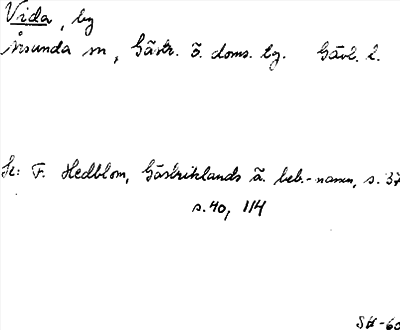 Vida, by
Årsunda sn, Gästr. ö. doms. lg. Gävl. l.
Se: F. Hedblom, Gästriklands ä. beb.-namn, s. 37
s. 40, 114
SH-60